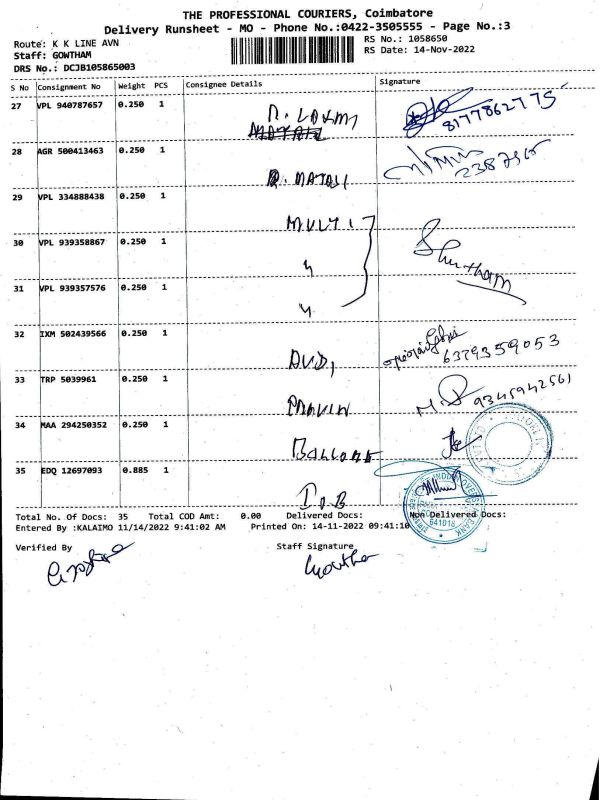 THE PROFESSIONAL COURIERS, Coimbatore
Delivery Runsheet - MO - Phone No.:0422-3505555 - Page No.:3
Route: K K LINE AVN
RS No.: 1058650
Staff: GOWTHAM
RS Date: 14-Nov-2022
DRS No.: DCJB105865003
S No Consignment No Weight PCS Consignee Details Signature
27 VPL 940787657 0.250 1 R. LAXMI
8177862775
28 AGR 500413463 0.250 1
29 VPL 334888438 0.250 1 MULTI
30 VPL 939358867 0.250 1 "
31 VPL 939357576 0.250 1 "
32 IXM 502439566 0.250 1
6379359053
33 TRP 5039961 0.250 1 PRAVIN
9345942561
34 MAA 294250352 0.250 1
35 EDQ 12697093 0.885 1 I.O.B
641018
Total No. Of Docs: 35 Total COD Amt: 0.00 Delivered Docs: Non Delivered Docs:
Entered By :KALAIMO 11/14/2022 9:41:02 AM Printed On: 14-11-2022 09:41:10
Verified By Staff Signature
Gowtham